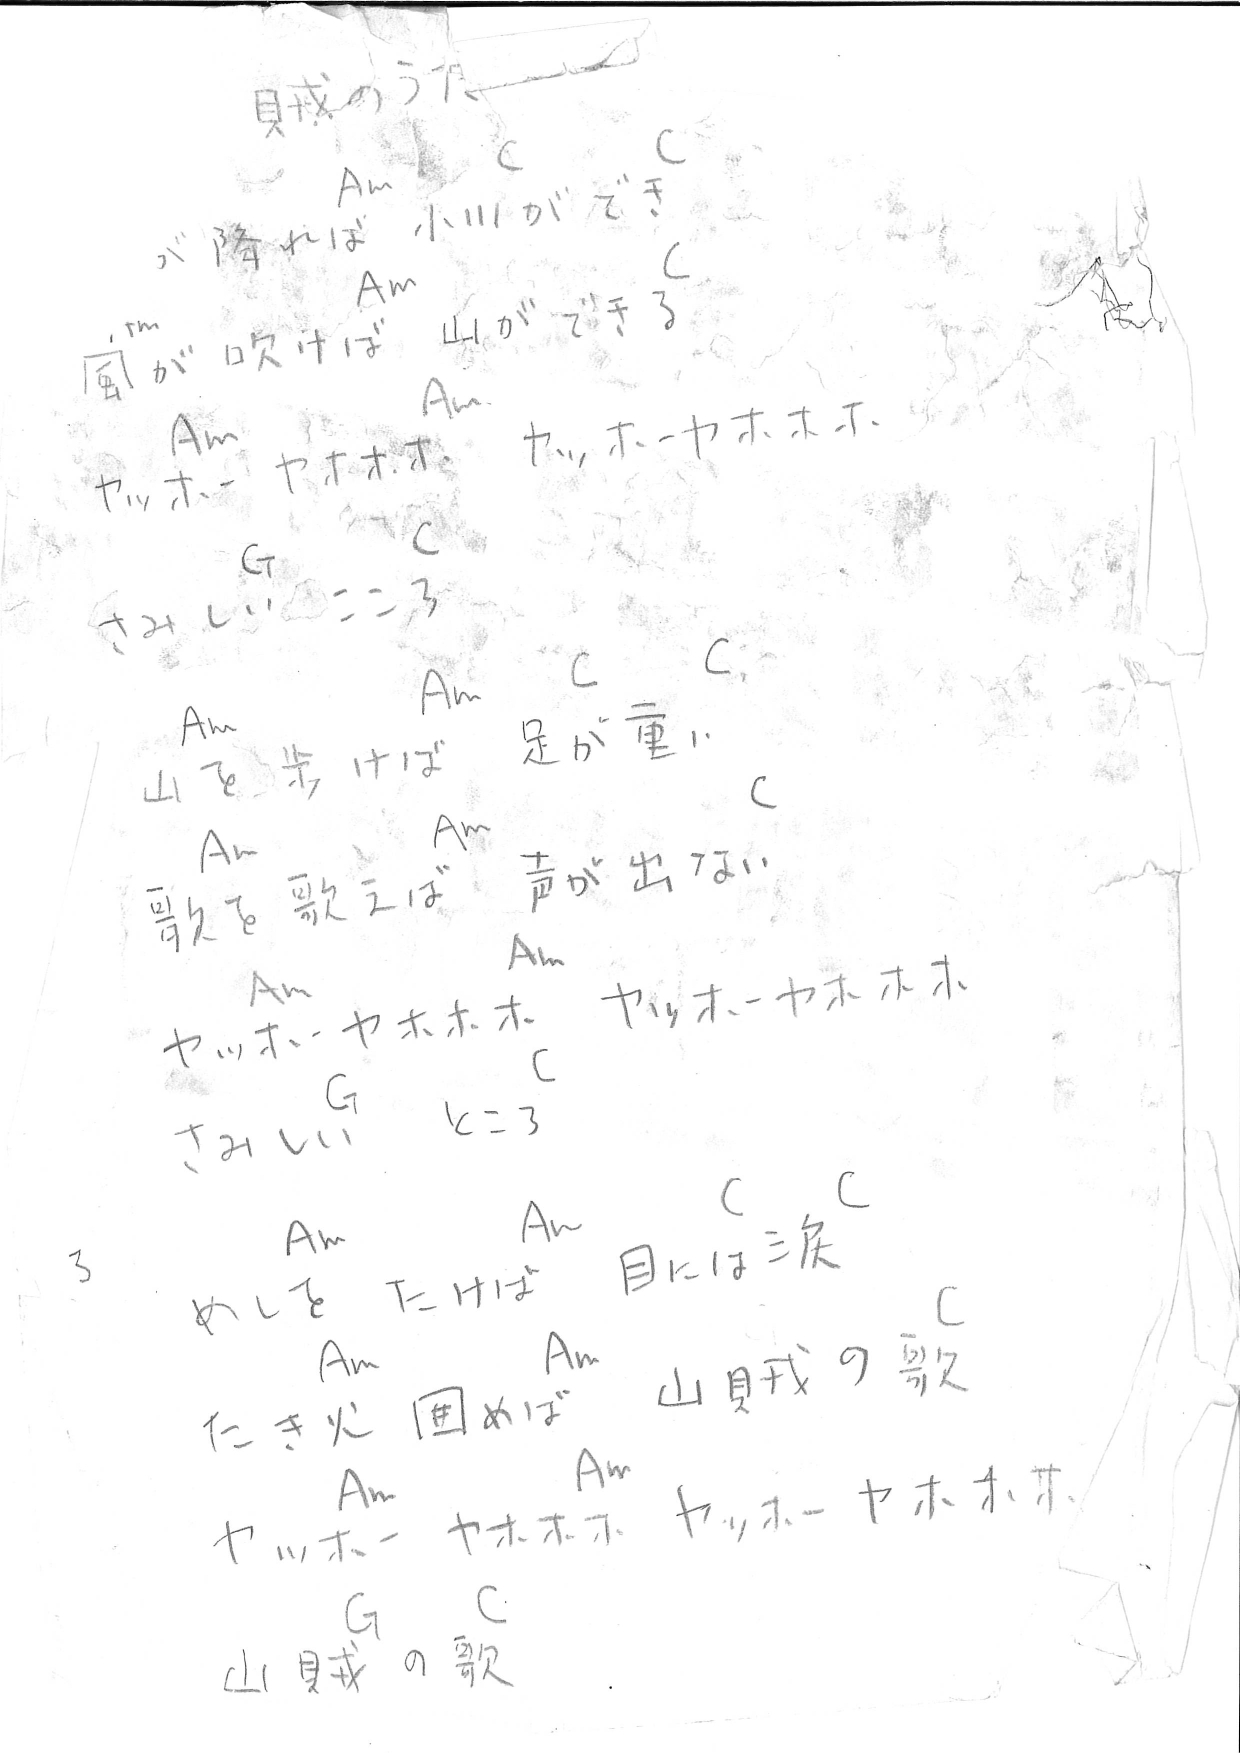 賊のうた
Am C C
が降れば 小川ができ
Am C
風が吹けば 山ができる
Am Am
ヤッホー ヤホホホ ヤッホーヤホホホ
G C
さみしい こころ
Am Am C C
山を歩けば 足が重い
Am Am C
歌を歌えば 声が出ない
Am Am
ヤッホーヤホホホ ヤッホーヤホホホ
G C
さみしい ところ
Am Am C C
3 めしを たけば 目には涙
Am Am C
たき火 囲めば 山賊の歌
Am Am
ヤッホー ヤホホホ ヤッホー ヤホホホ
G C
山賊の歌